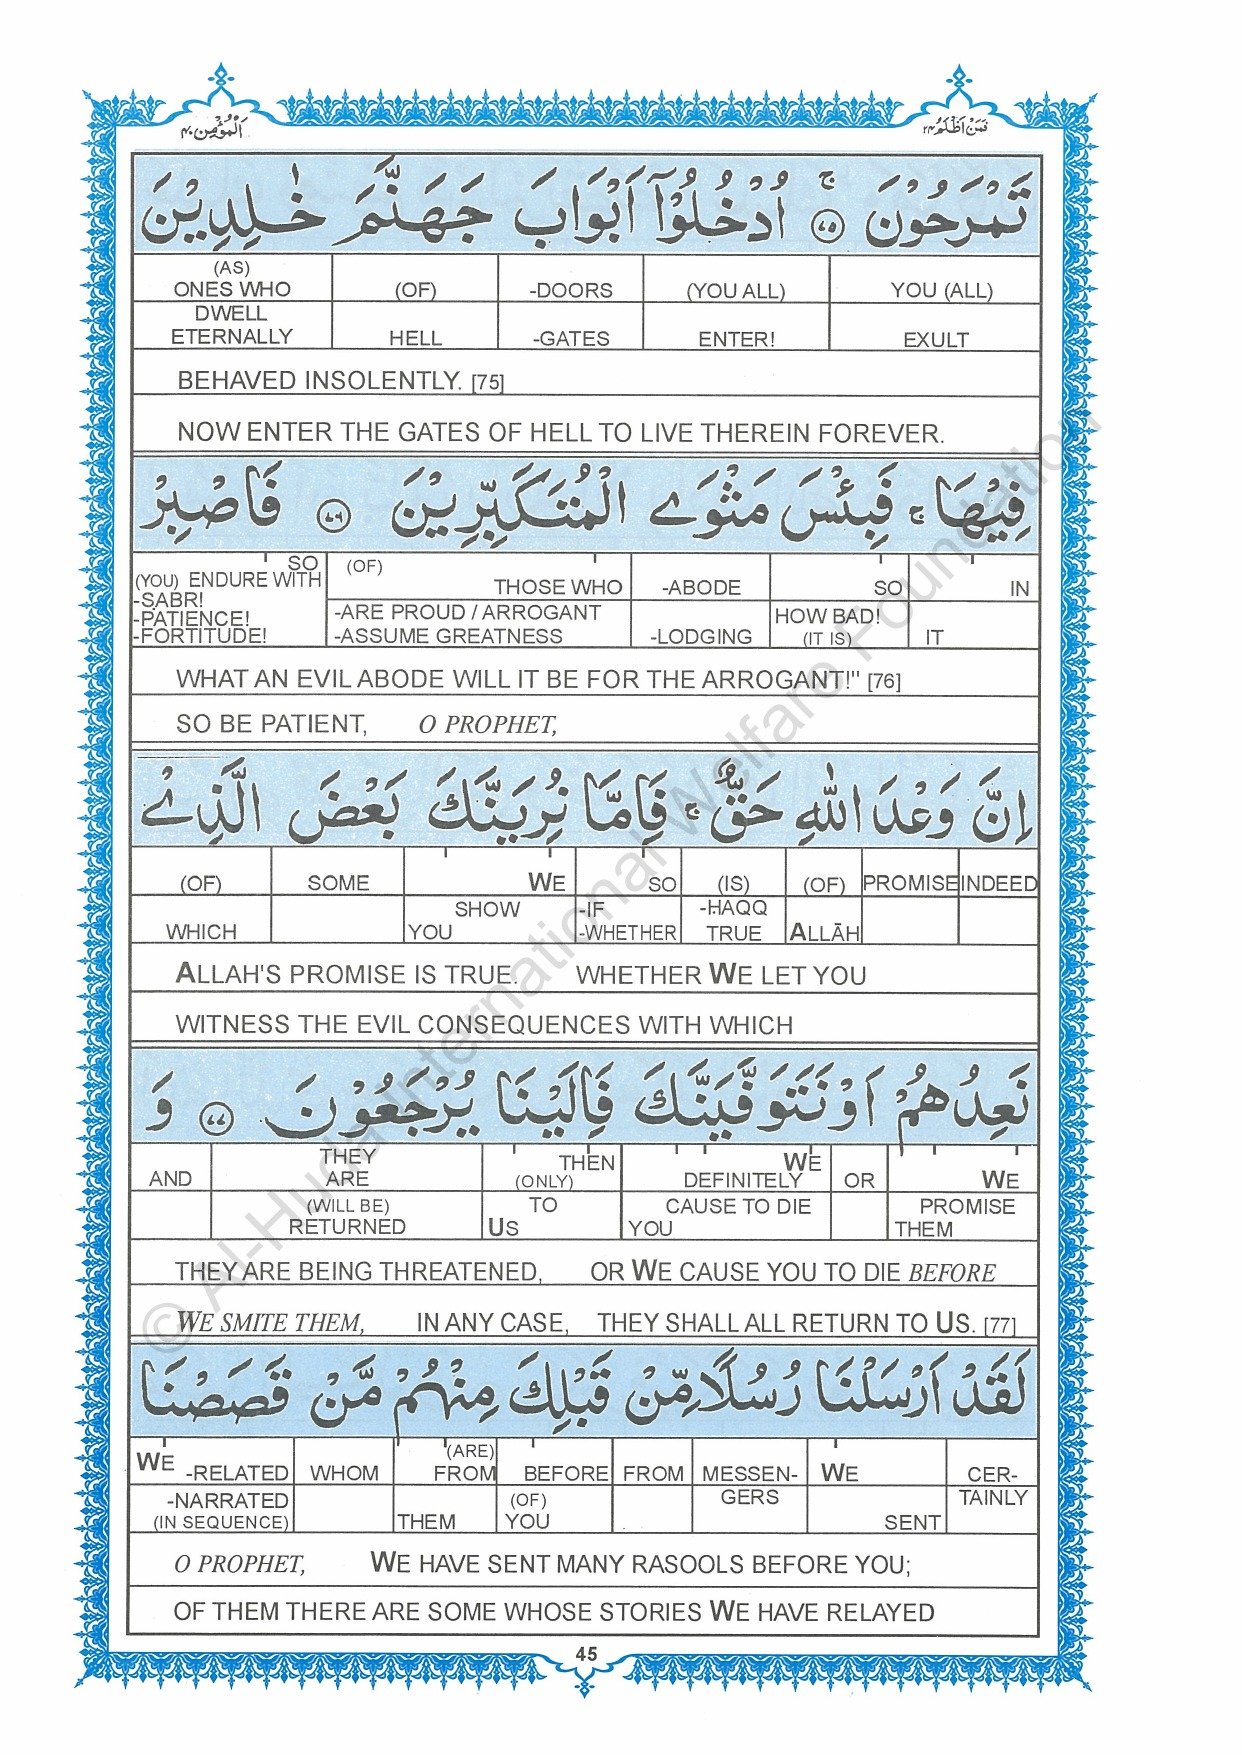 اَلْمُؤْمِن ٤٠ فَمَنْ اَظْلَمُ ٢٤
تَمْرَحُوْنَ ۚ ﴿٧٥﴾ اُدْخُلُوْٓا اَبْوَابَ جَهَنَّمَ خٰلِدِيْنَ
(AS) ONES WHO | (OF) | -DOORS | (YOU ALL) | YOU (ALL)
DWELL ETERNALLY | HELL | -GATES | ENTER! | EXULT
BEHAVED INSOLENTLY. [75]
NOW ENTER THE GATES OF HELL TO LIVE THEREIN FOREVER.
فِيْهَا ۚ فَبِئْسَ مَثْوَى الْمُتَكَبِّرِيْنَ ﴿٧٦﴾ فَاصْبِرْ
SO (YOU) ENDURE WITH | (OF) THOSE WHO | -ABODE | SO | IN
-SABR! -PATIENCE! -FORTITUDE! | -ARE PROUD / ARROGANT -ASSUME GREATNESS | -LODGING | HOW BAD! (IT IS) | IT
WHAT AN EVIL ABODE WILL IT BE FOR THE ARROGANT!" [76]
SO BE PATIENT, O PROPHET,
اِنَّ وَعْدَ اللّٰهِ حَقٌّ ۚ فَاِمَّا نُرِيَنَّكَ بَعْضَ الَّذِىْ
(OF) | SOME | WE | SO | (IS) | (OF) | PROMISE | INDEED
WHICH | SHOW YOU | -IF -WHETHER | -HAQQ TRUE | ALLĀH
ALLAH'S PROMISE IS TRUE. WHETHER WE LET YOU
WITNESS THE EVIL CONSEQUENCES WITH WHICH
نَعِدُهُمْ اَوْ نَتَوَفَّيَنَّكَ فَاِلَيْنَا يُرْجَعُوْنَ ﴿٧٧﴾ وَ
AND | THEY ARE | THEN (ONLY) | WE DEFINITELY | OR | WE
(WILL BE) RETURNED | TO US | CAUSE TO DIE YOU | PROMISE THEM
THEY ARE BEING THREATENED, OR WE CAUSE YOU TO DIE BEFORE
WE SMITE THEM, IN ANY CASE, THEY SHALL ALL RETURN TO US. [77]
لَقَدْ اَرْسَلْنَا رُسُلًا مِّنْ قَبْلِكَ مِنْهُمْ مَّنْ قَصَصْنَا
WE -RELATED | WHOM | (ARE) FROM | BEFORE | FROM | MESSEN- | WE | CER-
-NARRATED (IN SEQUENCE) | THEM | (OF) YOU | GERS | SENT | TAINLY
O PROPHET, WE HAVE SENT MANY RASOOLS BEFORE YOU;
OF THEM THERE ARE SOME WHOSE STORIES WE HAVE RELAYED
45
© Al-Huda International Welfare Foundation